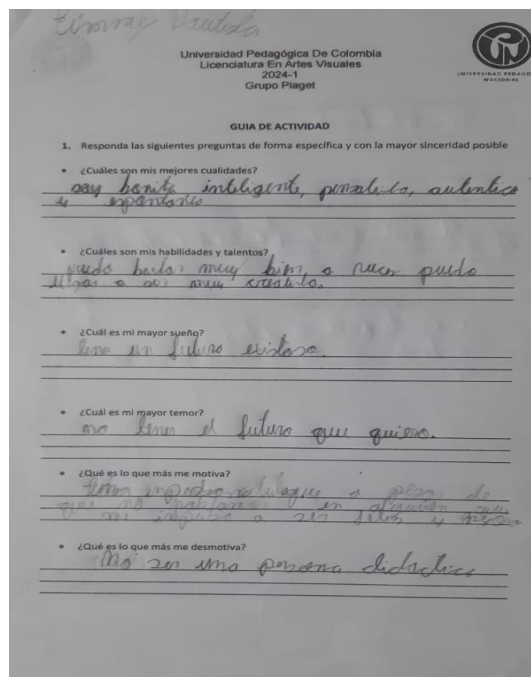 Universidad Pedagógica De Colombia
Licenciatura En Artes Visuales
2024-1
Grupo Piaget
UNIVERSIDAD PEDAGOGICA
NACIONAL
GUIA DE ACTIVIDAD
1. Responda las siguientes preguntas de forma específica y con la mayor sinceridad posible
• ¿Cuáles son mis mejores cualidades?
soy bonito, inteligente, autentico
y
• ¿Cuáles son mis habilidades y talentos?
puedo bailar muy bien, a veces puedo
llegar a ser muy creativo.
• ¿Cuál es mi mayor sueño?
tener un futuro existoso.
• ¿Cuál es mi mayor temor?
no tener el futuro que quiero.
• ¿Qué es lo que más me motiva?
a pesar de
que no hablamos es alguien que
me impulsa a ser
• ¿Qué es lo que más me desmotiva?
No ser una persona didactica